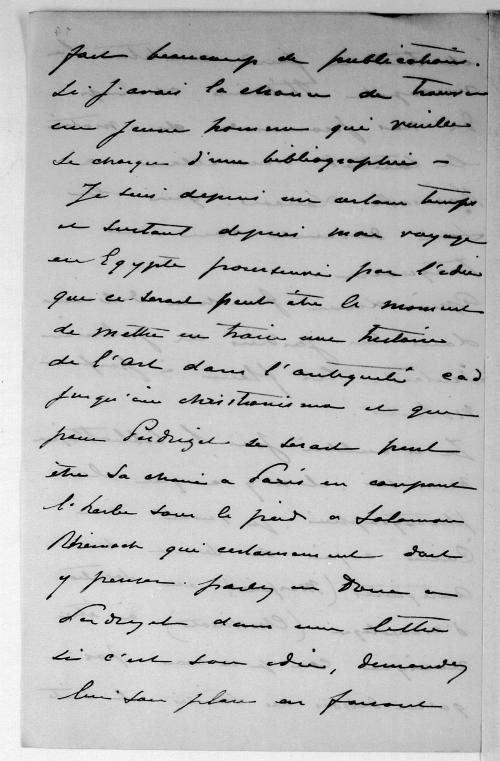 fait beaucoup de publications.
Si j'avais la chance de trouver
un jeune homme qui veuille
se charger d'une bibliographie –
Je suis depuis un certain temps
et surtout depuis mon voyage
en Egypte poursuivi par l'idée
que ce serait peut être le moment
de mettre en train une histoire
de l'art dans l'antiquité càd
jusqu'au christianisme et que
pour Perdrizet se serait peut
être sa chaire a Paris en coupant
l'herbe sous le pied a Salomon
Reinach qui certainement doit
y penser. parlez en donc a
Perdrizet dans une lettre
si c'est son idée, demandez
lui son plan en faisant